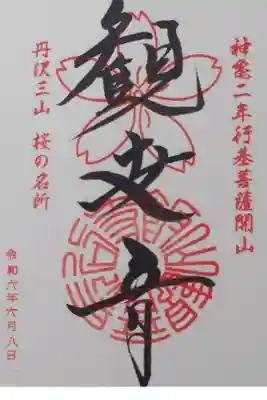 神亀二年行基菩薩開山
観世音
丹沢三山 桜の名所
令和六年六月八日